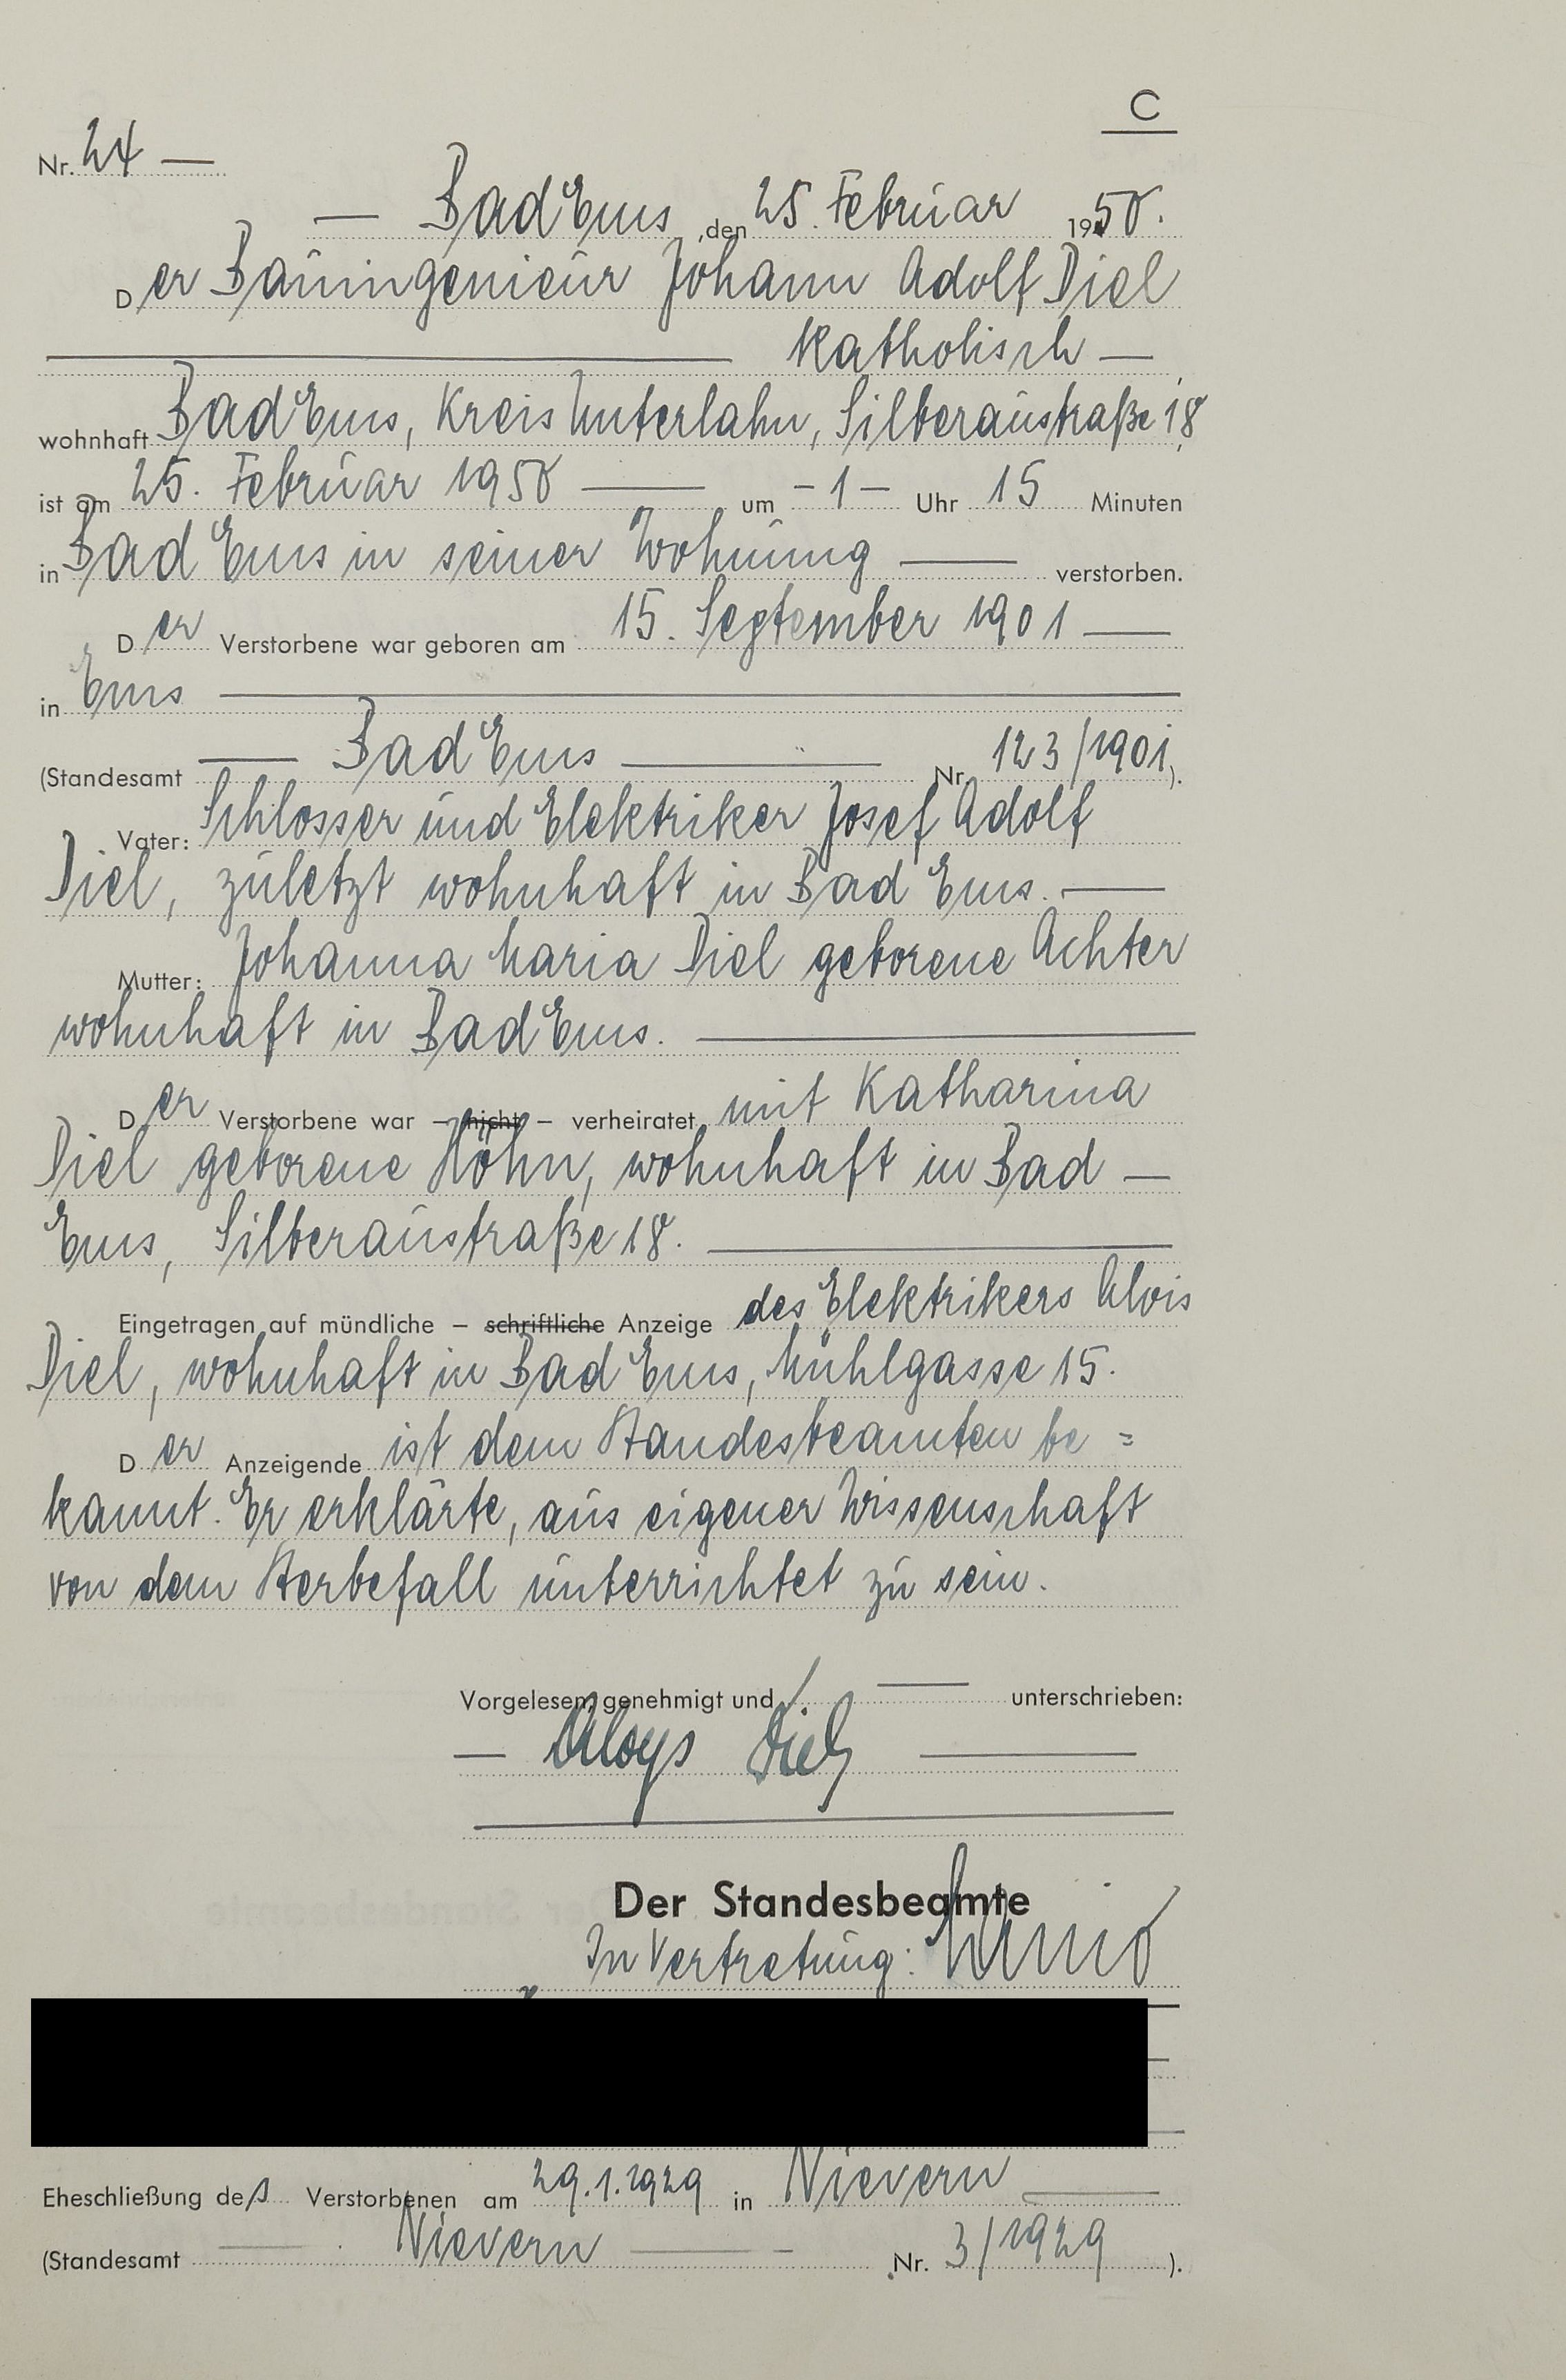 C
Nr. 24 —
— Bad Ems, den 25. Februar 1950.
Der Bauingenieur Johann Adolf Diel
— katholisch —,
wohnhaft Bad Ems, Kreis Unterlahn, Silberaustraße 18,
ist am 25. Februar 1950 — um – 1 – Uhr 15 Minuten
in Bad Ems in seiner Wohnung — verstorben.
Der Verstorbene war geboren am 15. September 1901 —
in Ems —
(Standesamt — Bad Ems — Nr. 123/1901).
Vater: Schlosser und Elektriker Josef Adolf
Diel, zuletzt wohnhaft in Bad Ems. —
Mutter: Johanna Maria Diel geborene Achter
wohnhaft in Bad Ems. —
Der Verstorbene war – nicht – verheiratet mit Katharina
Diel geborene Höhn, wohnhaft in Bad —
Ems, Silberaustraße 18. —
Eingetragen auf mündliche – schriftliche Anzeige des Elektrikers Alois
Diel, wohnhaft in Bad Ems, Mühlgasse 15.
Der Anzeigende ist dem Standesbeamten be=
kannt. Er erklärte, aus eigener Wissenschaft
von dem Sterbefall unterrichtet zu sein.
Vorgelesen, genehmigt und — unterschrieben:
— Aloys Diel —
Der Standesbeamte
In Vertretung:
Eheschließung des Verstorbenen am 29.1.1929 in Nievern —
(Standesamt — Nievern — Nr. 3/1929).